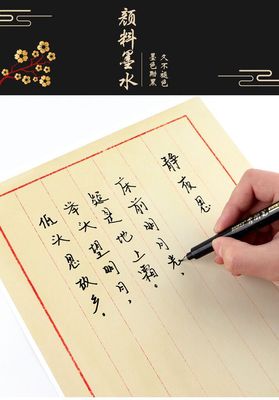 颜料墨水
久不褪色
墨色黝黑
静夜思
床前明月光，
疑是地上霜。
举头望明月，
低头思故乡。